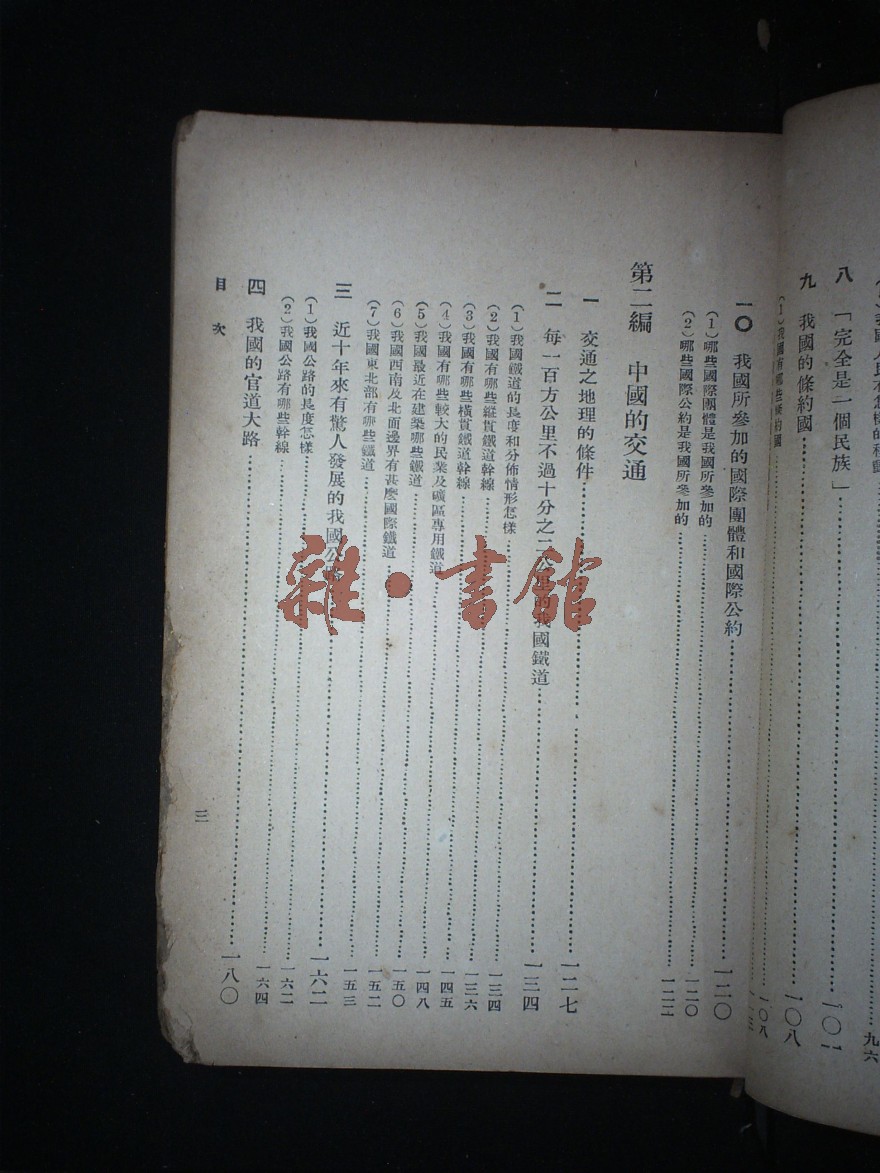 九六
八 「完全是一個民族」……一〇一
九 我國的條約國……一〇八
(1)我國有哪些條約國……一〇八
一〇 我國所參加的國際團體和國際公約……一二〇
(1)哪些國際團體是我國所參加的……一二〇
(2)哪些國際公約是我國所參加的……一二二
第二編 中國的交通
一 交通之地理的條件……一二七
二 每一百方公里不過十分之二公里的我國鐵道……一三四
(1)我國鐵道的長度和分佈情形怎樣……一三四
(2)我國有哪些縱貫鐵道幹線……一三六
(3)我國有哪些橫貫鐵道幹線……一四五
(4)我國有哪些較大的民業及礦區專用鐵道……一四八
(5)我國最近在建築哪些鐵道……一五〇
(6)我國西南及北面邊界有甚麼國際鐵道……一五二
(7)我國東北部有哪些鐵道……一五三
三 近十年來有驚人發展的我國公路……一六二
(1)我國公路的長度怎樣……一六二
(2)我國公路有哪些幹線……一六四
四 我國的官道大路……一八〇
目次
三
雜·書館